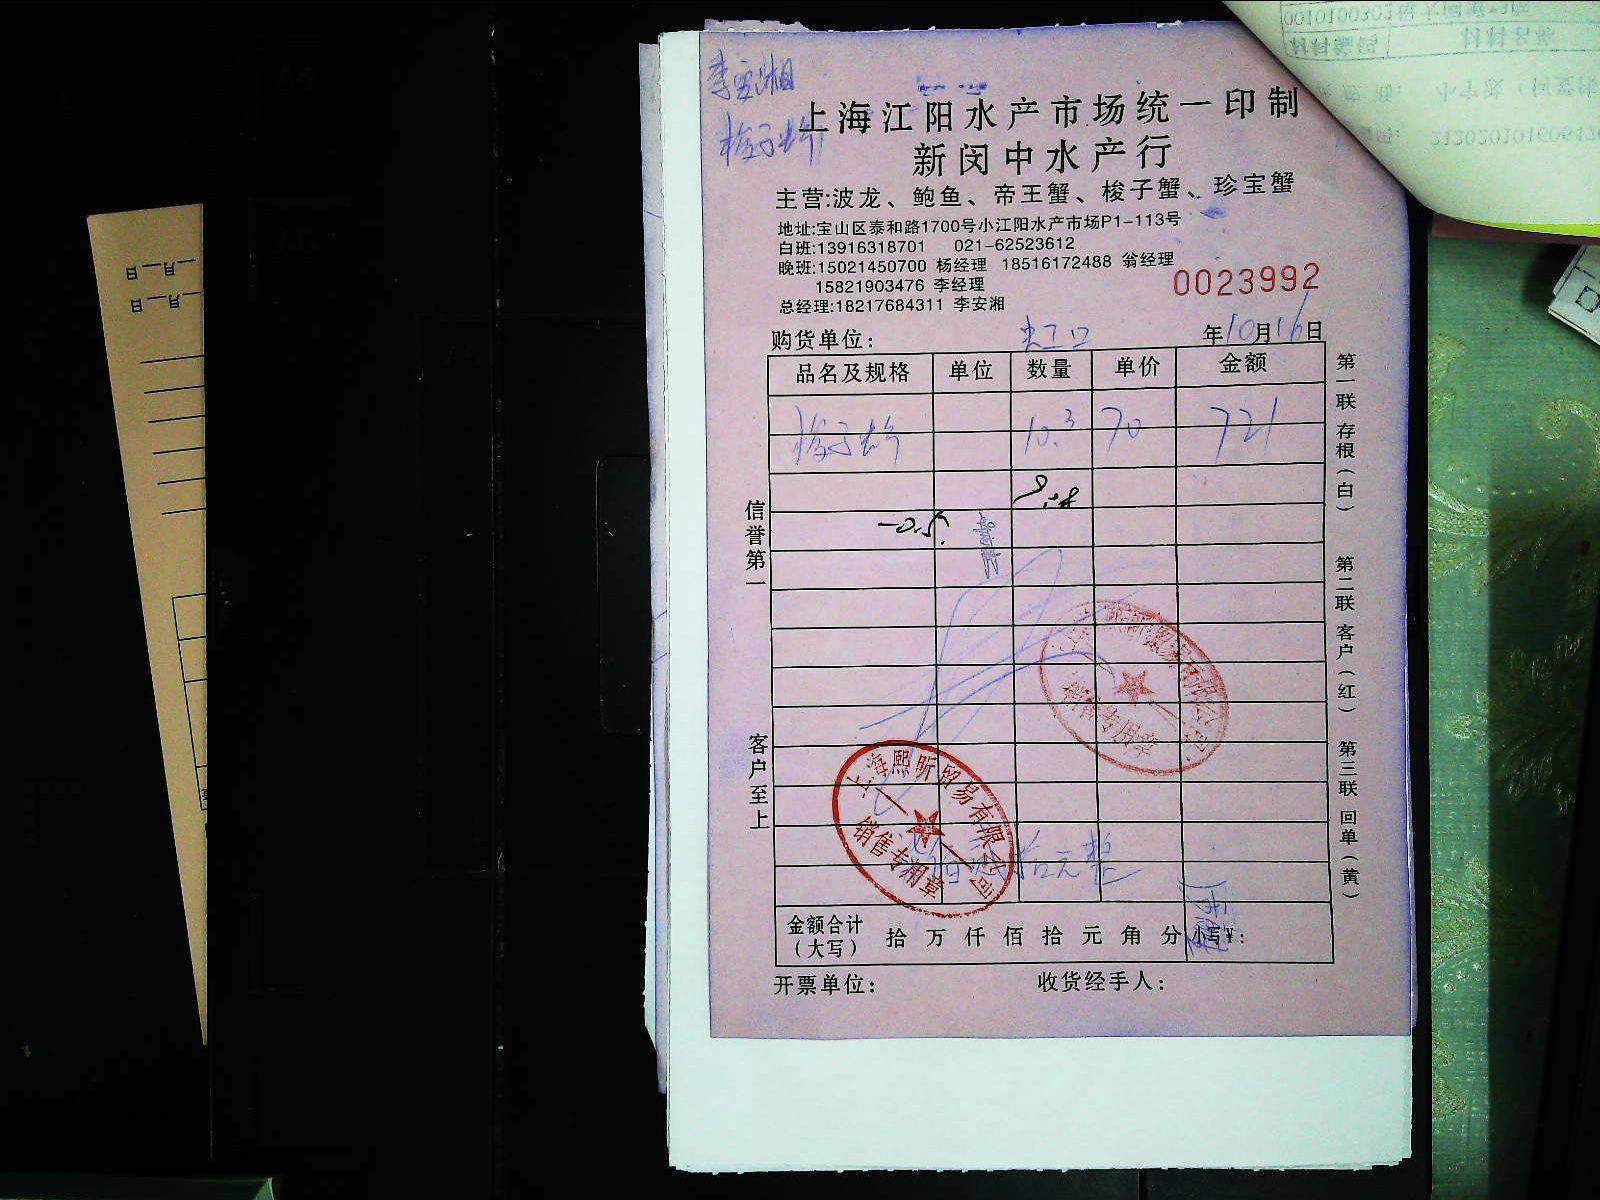 李安湘
梭子蟹
上海江阳水产市场统一印制
新闵中水产行
主营:波龙、鲍鱼、帝王蟹、梭子蟹、珍宝蟹
地址:宝山区泰和路1700号小江阳水产市场P1-113号
白班:13916318701 021-62523612
晚班:15021450700 杨经理 18516172488 翁经理
15821903476 李经理
总经理:18217684311 李安湘
0023992
购货单位: 年10月16日
品名及规格 单位 数量 单价 金额
梭子蟹 10.3 70 721
9.8
-0.5
信誉第一
客户至上
第一联 存根(白)
第二联 客户(红)
第三联 回单(黄)
上海熙昕贸易有限公司
销售专用章
上海熙昕贸易有限公司
销售专用章
拾元整
金额合计
(大写) 拾 万 仟 佰 拾 元 角 分 小写¥:
开票单位: 收货经手人:
日__月__
日__月__